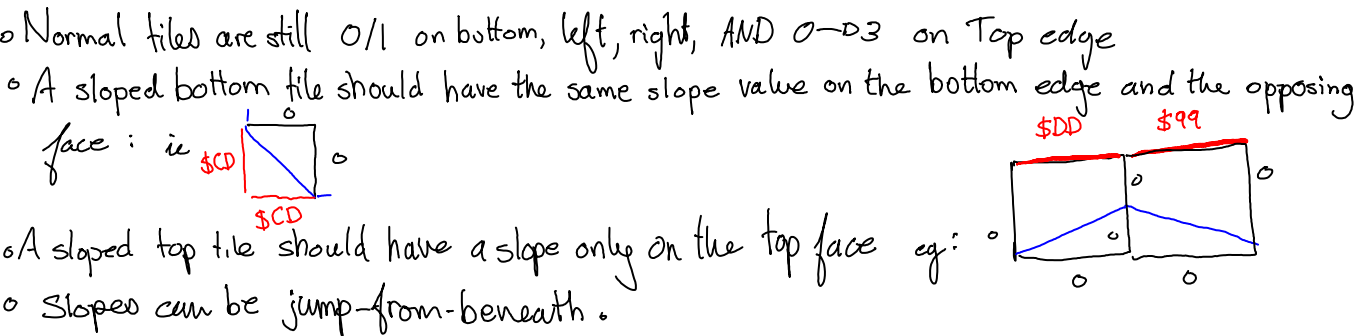 o Normal tiles are still 0/1 on bottom, left, right, AND 0→3 on Top edge
o A sloped bottom tile should have the same slope value on the bottom edge and the opposing
face : ie $CD 0 0 $CD
$DD $99 0 0 0 0 0 0
o A sloped top tile should have a slope only on the top face eg:
o Slopes can be jump-from-beneath.